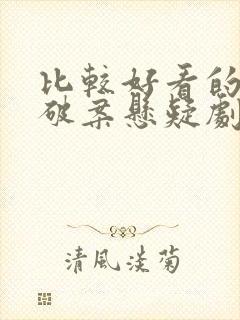 比較好看的
破案懸疑劇
清風淡菊